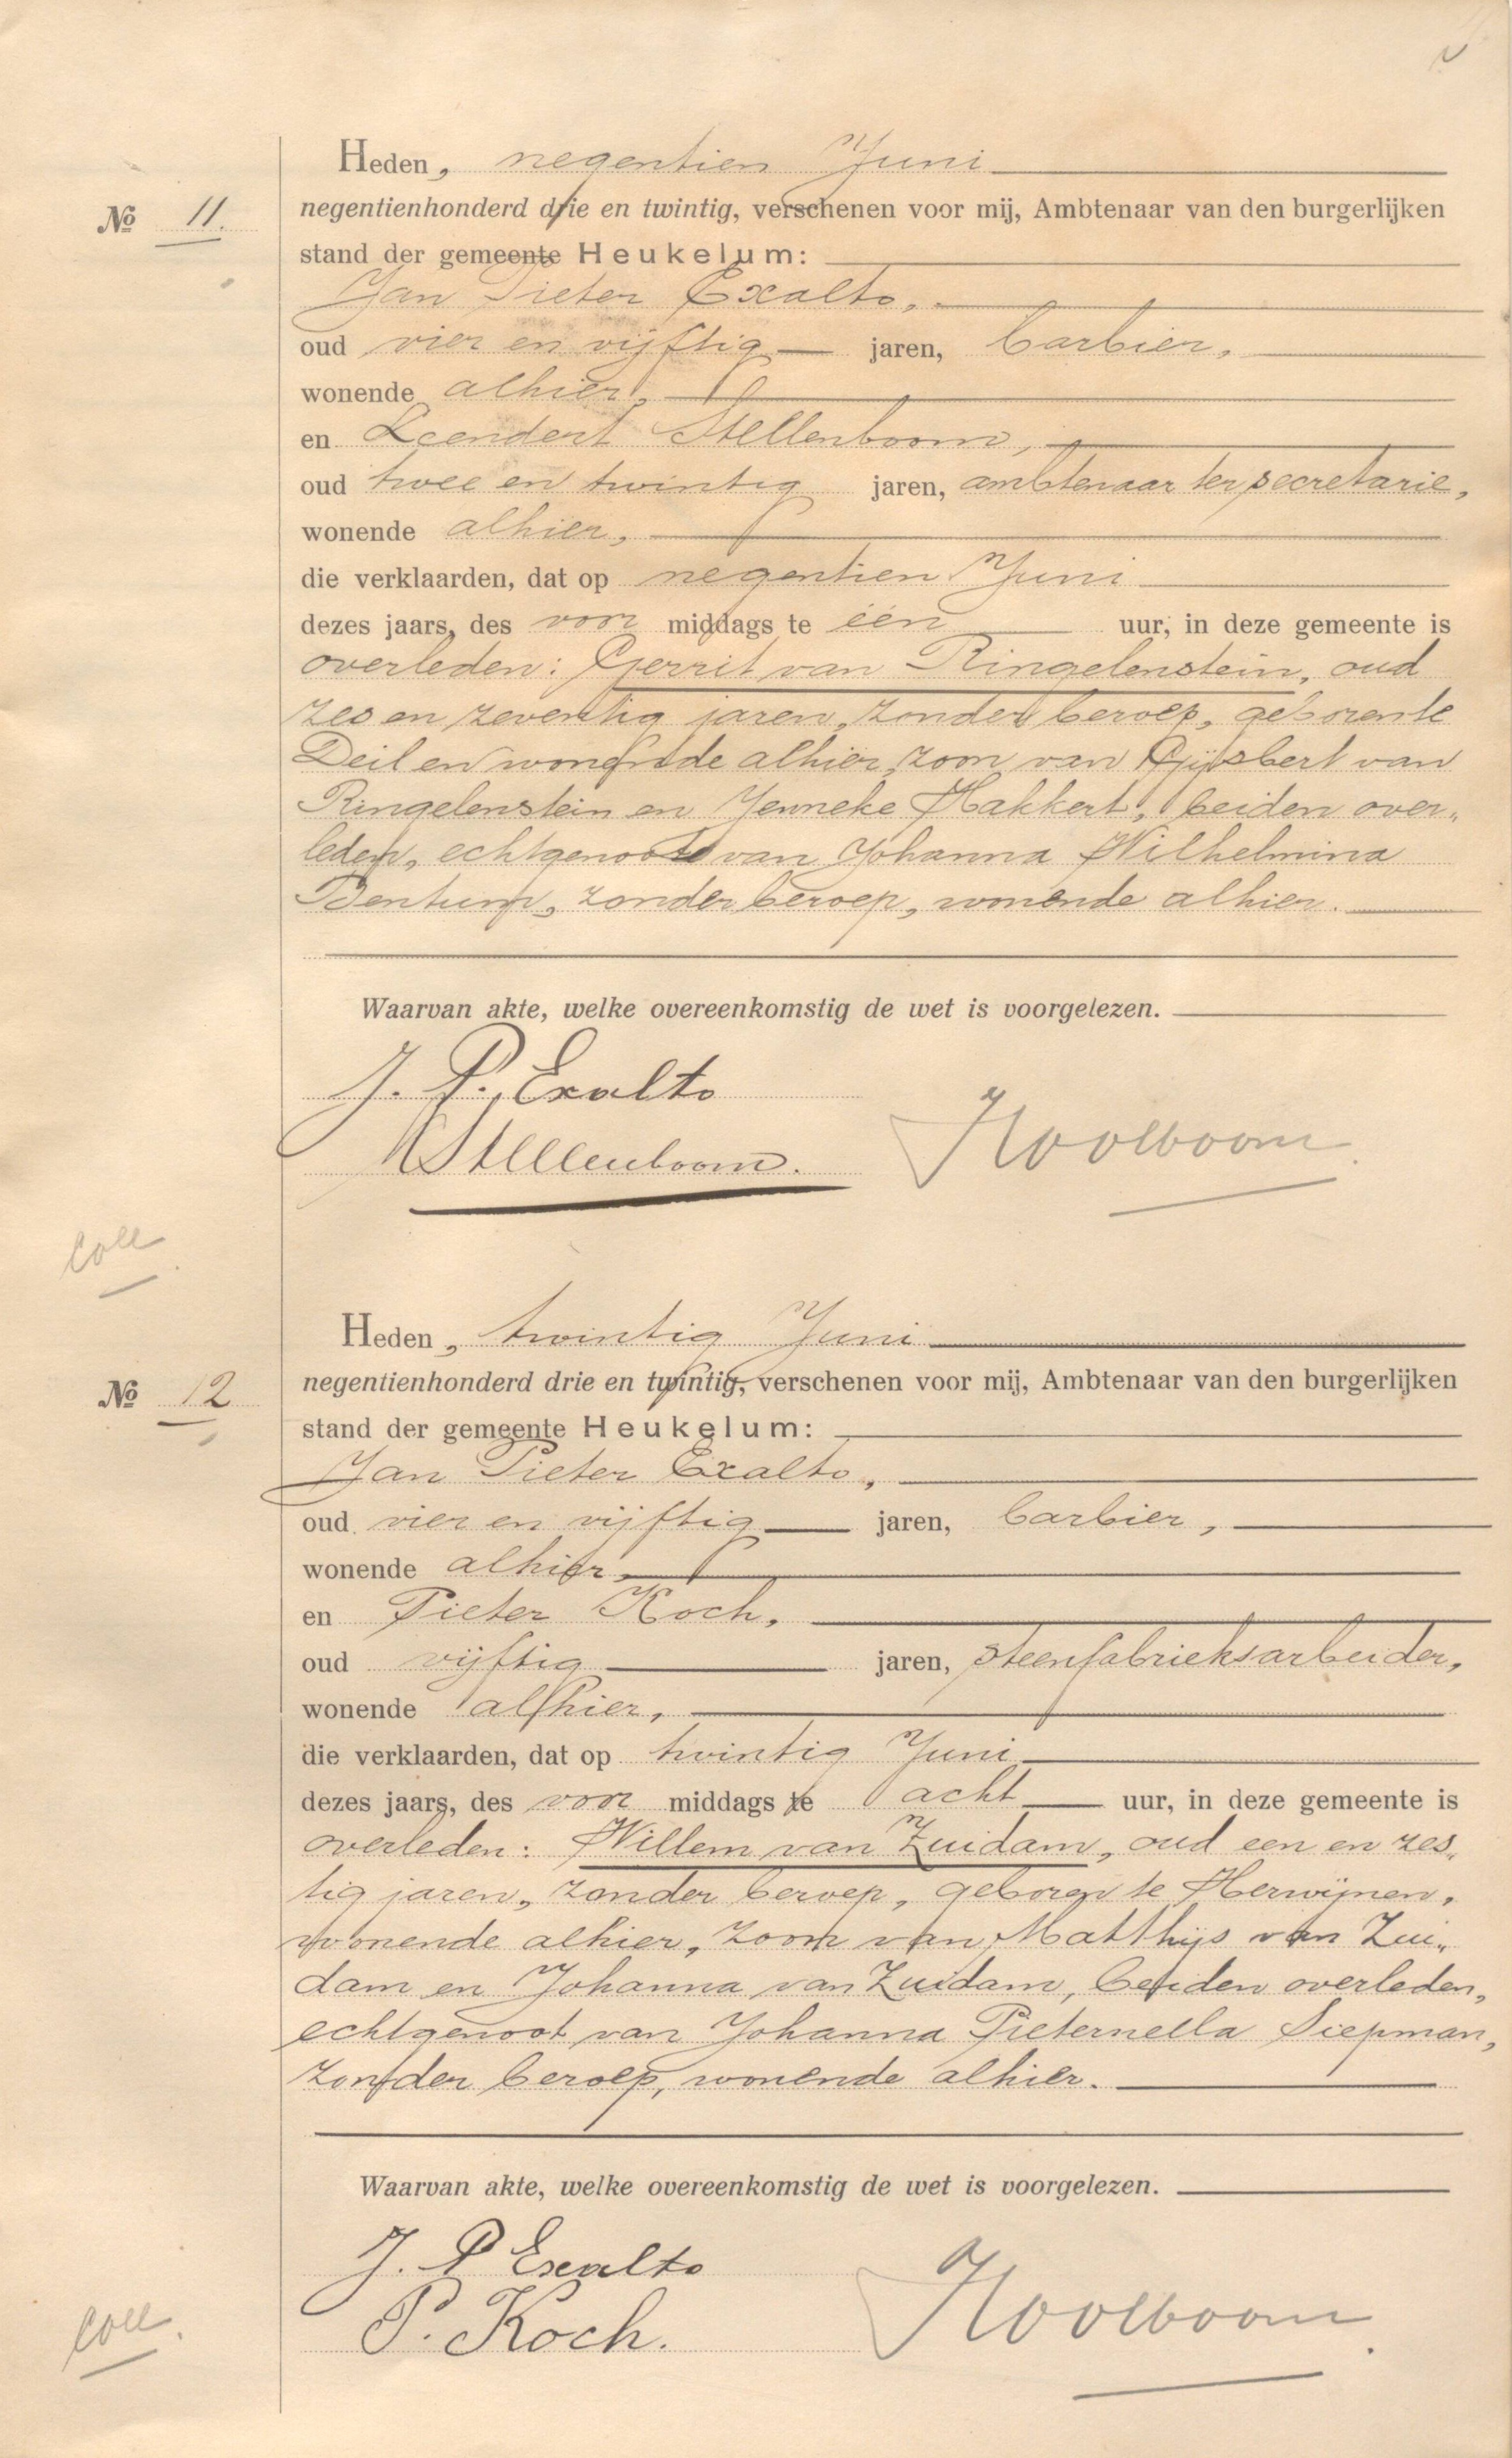 Heden, negentien Juni
No 11.
negentienhonderd drie en twintig, verschenen voor mij, Ambtenaar van den burgerlijken
stand der gemeente Heukelum:
Jan Pieter Exalto,
oud vier en vijftig jaren, barbier,
wonende alhier,
en Leendert Stellenboom,
oud twee en twintig jaren, ambtenaar ter secretarie,
wonende alhier,
die verklaarden, dat op negentien Juni
dezes jaars, des voor middags te één uur, in deze gemeente is
overleden: Gerrit van Ringelenstein, oud
zes en zeventig jaren, zonder beroep, geboren te
Deil en wonende alhier, zoon van Gijsbert van
Ringelenstein en Jenneke Hakkert, beiden over-
leden, echtgenoot van Johanna Wilhelmina
Bentum, zonder beroep, wonende alhier.
Waarvan akte, welke overeenkomstig de wet is voorgelezen.
J. P. Exalto
Stellenboom.
Koolboom
coll
Heden, twintig Juni
No 12
negentienhonderd drie en twintig, verschenen voor mij, Ambtenaar van den burgerlijken
stand der gemeente Heukelum:
Jan Pieter Exalto,
oud vier en vijftig jaren, barbier,
wonende alhier,
en Pieter Koch,
oud vijftig jaren, steenfabrieksarbeider,
wonende alhier,
die verklaarden, dat op twintig Juni
dezes jaars, des voor middags te acht uur, in deze gemeente is
overleden: Willem van Zuidam, oud een en zes-
tig jaren, zonder beroep, geboren te Herwijnen,
wonende alhier, zoon van Matthijs van Zui-
dam en Johanna van Zuidam, beiden overleden,
echtgenoot van Johanna Pieternella Siepman,
zonder beroep, wonende alhier.
Waarvan akte, welke overeenkomstig de wet is voorgelezen.
J. P Exalto
P. Koch.
Koolboom
coll.